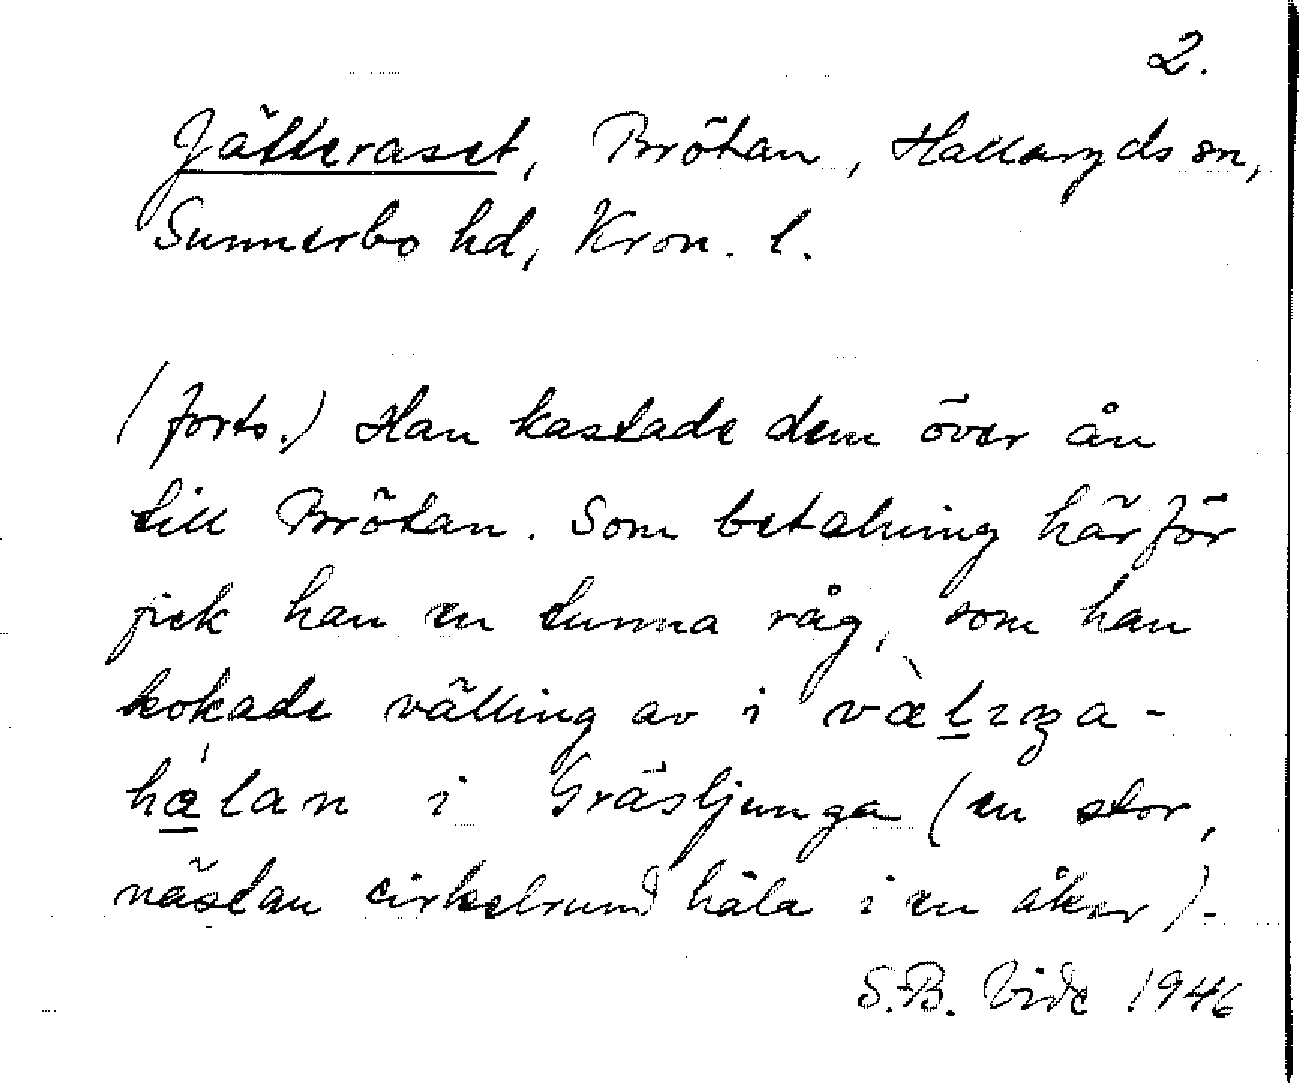 2.
Jätteraset, Brötan, Hallaryds sn,
Sunnerbo hd, Kron. l.
(forts.) Han kastade dem över ån
till Brötan. Som betalning härför
fick han en tunna råg, som han
kokade välling av i væ̀lıŋa-
hålan i Gräsljunga (en stor,
nästan cirkelrund håla i en åker).
S.B. Vide 1946